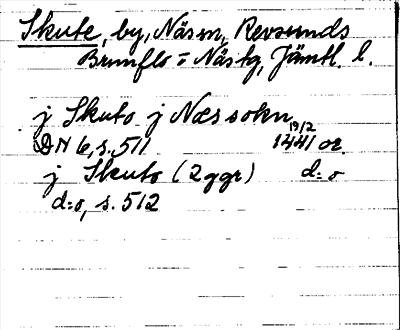 Skute, by, Näs sn, Revsunds
Brunflo o Näs tg, Jämtl. l.
j Skuto j Næs sokn
19/2
DN 6, s. 511 1441 or.
j Skuto (2 ggr) d:o
d:o, s. 512